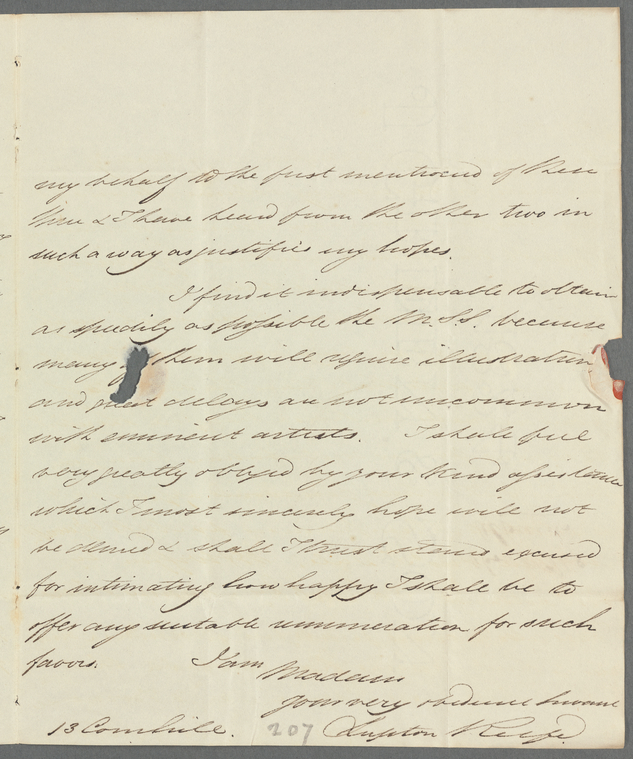 my behalf to the first mentioned of these
three & I have heard from the other two in
such a way as justifies my hopes.
I find it indispensable to obtain
as speedily as possible the M.S.S. because
many of them will require illustration
and great delays are not uncommon
with eminent artists. I shall feel
very greatly obliged by your kind assistance
which I most sincerely hope will not
be denied & shall I trust stand excused
for intimating how happy I shall be to
offer any suitable remuneration for such
favors. I am
Madam
your very obedient Servant
13 Cornhill. 207 Lupton Relfe